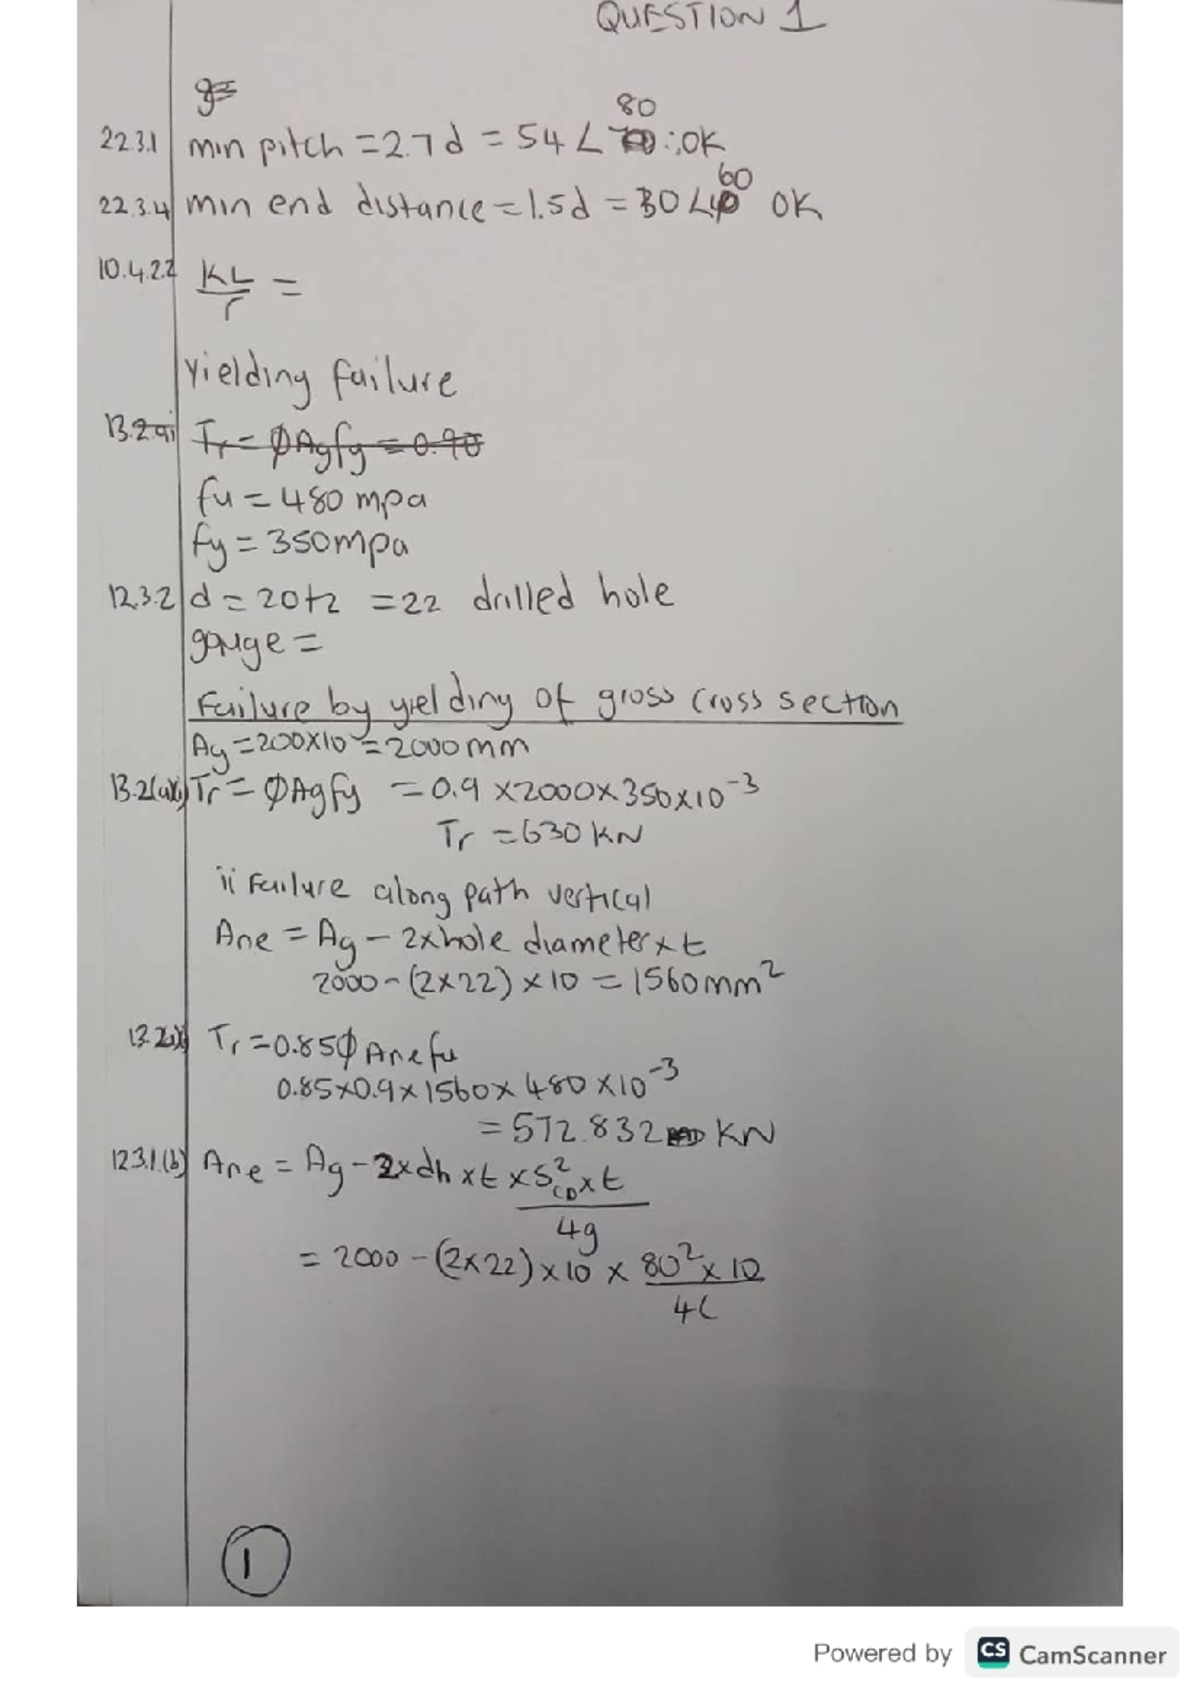 QUESTION 1
g=
22.3.1 min pitch = 2.7d = 54 < 80 ∴ OK
22.3.4 min end distance = 1.5d = 30 < 60 OK
10.4.2.2 KL/r =
Yielding failure
13.2.ai Tr = ØAgfy = 0.90
fu = 480 mpa
fy = 350mpa
12.3.2 d = 20+2 = 22 drilled hole
gauge =
Failure by yielding of gross cross section
Ag = 200x10 = 2000mm
Tr = ØAgfy = 0.9 x2000x350x10⁻³
Tr = 630 KN
ii Failure along path vertical
Ane = Ag - 2xhole diameter x t
2000 - (2x22) x 10 = 1560mm²
Tr = 0.85Ø Ane fu
0.85x0.9x1560x 480 x10⁻³
= 572.832 KN
12.3.1.(b) Ane = Ag - 2xdh xt x S²CD x t / 4g
= 2000 - (2x22) x 10 x 80² x 10 / 4(
1
Powered by CS CamScanner